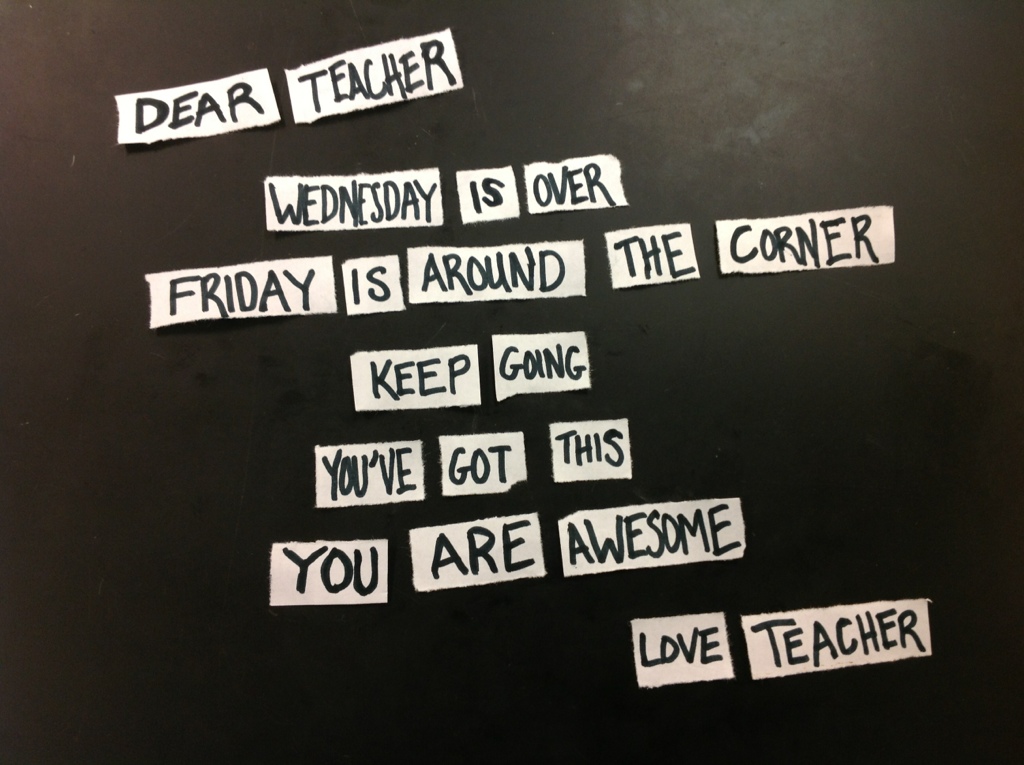 DEAR TEACHER
WEDNESDAY IS OVER
FRIDAY IS AROUND THE CORNER
KEEP GOING
YOU'VE GOT THIS
YOU ARE AWESOME
LOVE TEACHER